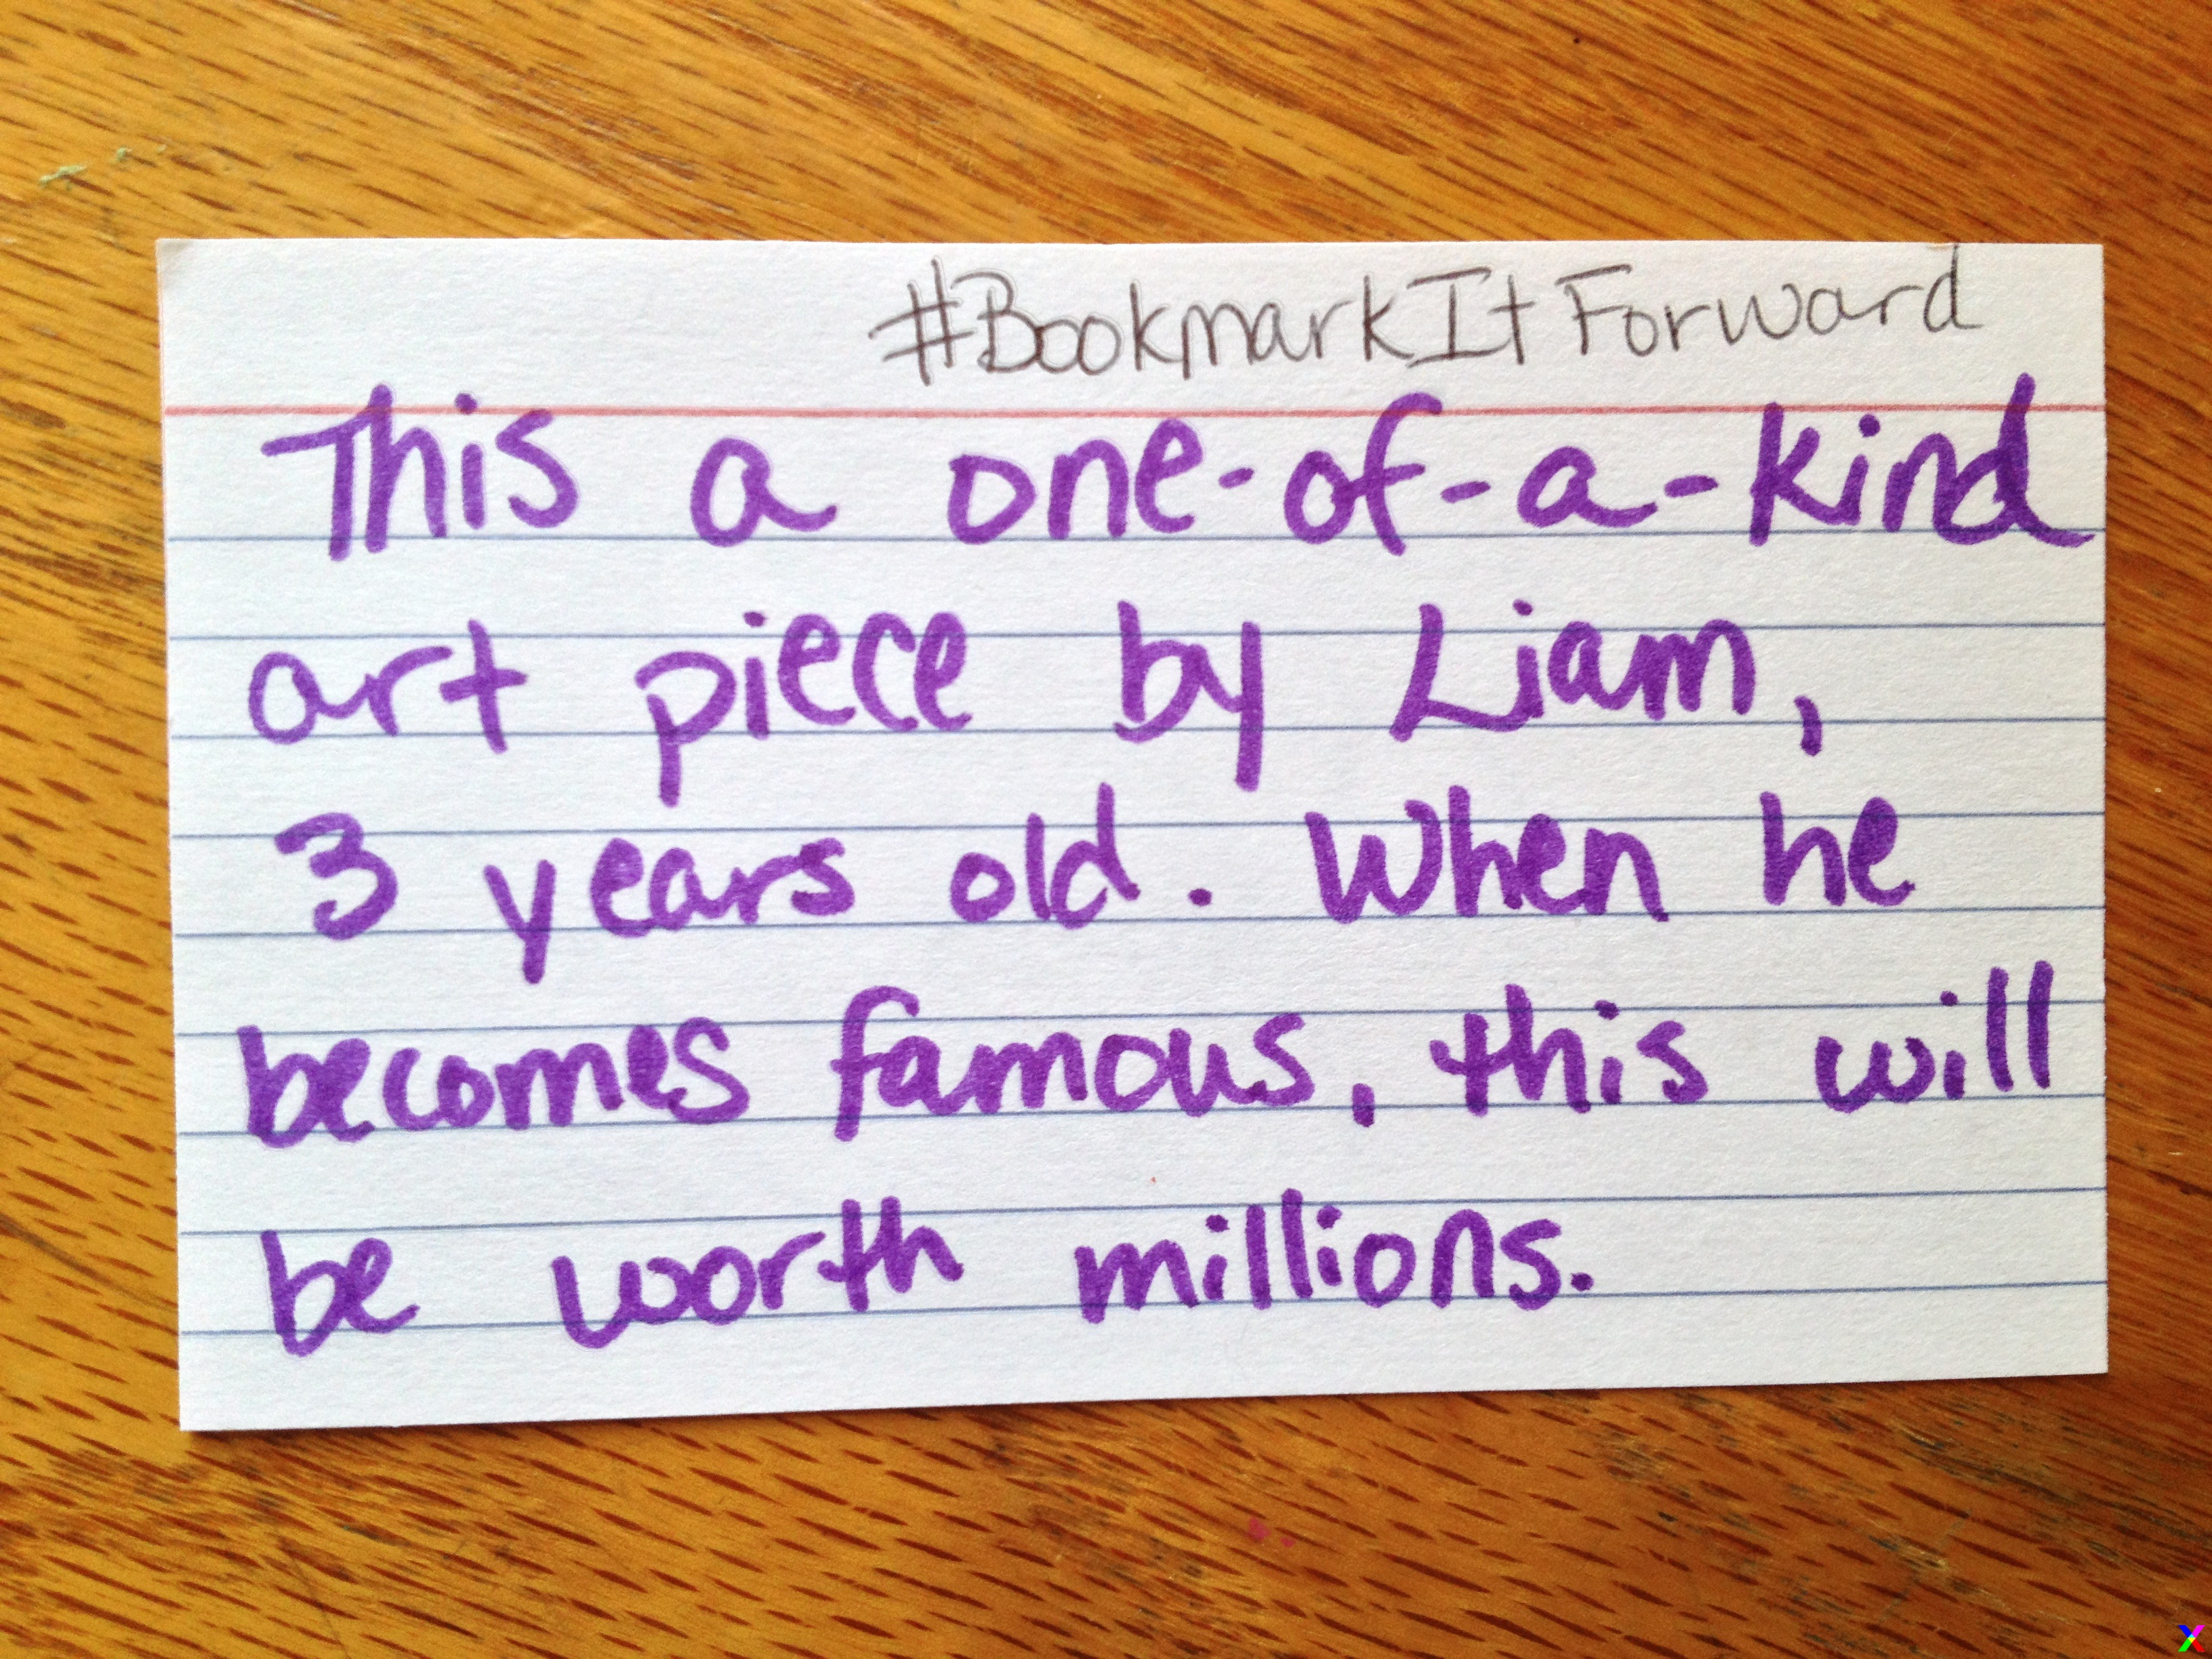 #BookmarkItForward
This a one-of-a-kind
art piece by Liam,
3 years old. When he
becomes famous, this will
be worth millions.
X